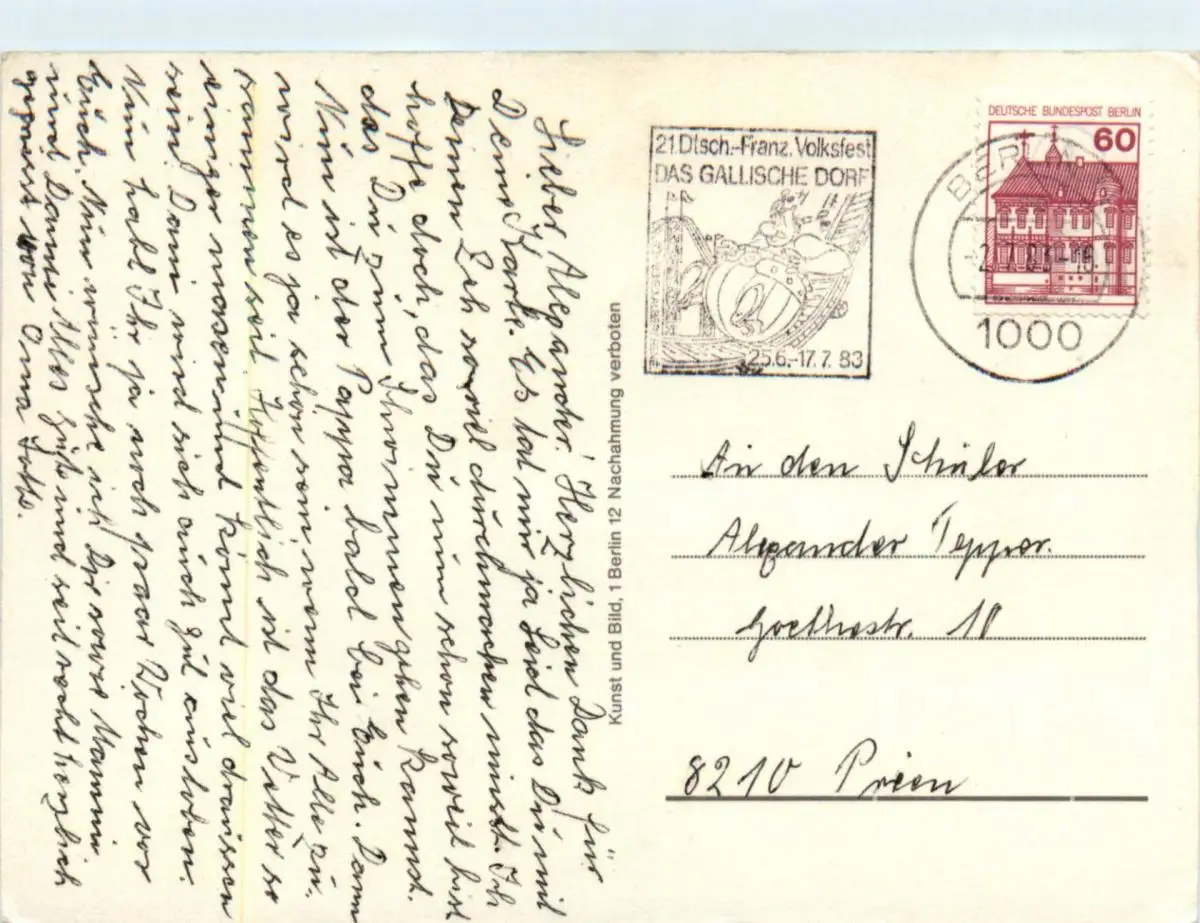 Lieber Alexander. Herzlichen Dank für
Deine Karte. Es tat mir ja Leid das Du mit
Deinen Zeh soviel durchmachen musst. Ich
hoffe doch, das Du nun schon soweit bist
das Du zum Schwimmen gehen kannst.
Nun ist der Pappa bald bei Euch. Dann
wird es ja schön sein wenn Ihr Alle zu-
sammen seit. Hoffentlich ist das Wetter so
einigermassen und könnt viel draussen
sein. Dani wird sich auch gut austoben.
Nun habt Ihr ja noch paar Wochen vor
Euch. Nun wünsche ich Dir sowie Mammi
und Danni Alles Gute und seit recht herzlich
gegrüsst von Oma
Kunst und Bild, 1 Berlin 12 Nachahmung verboten
21.Dtsch.-Franz. Volksfest
DAS GALLISCHE DORF
25.6.-17.7.83
DEUTSCHE BUNDESPOST BERLIN
60
BERLIN
1000
An den Schüler
Alexander Tepper.
Goethestr. 10
8210 Prien